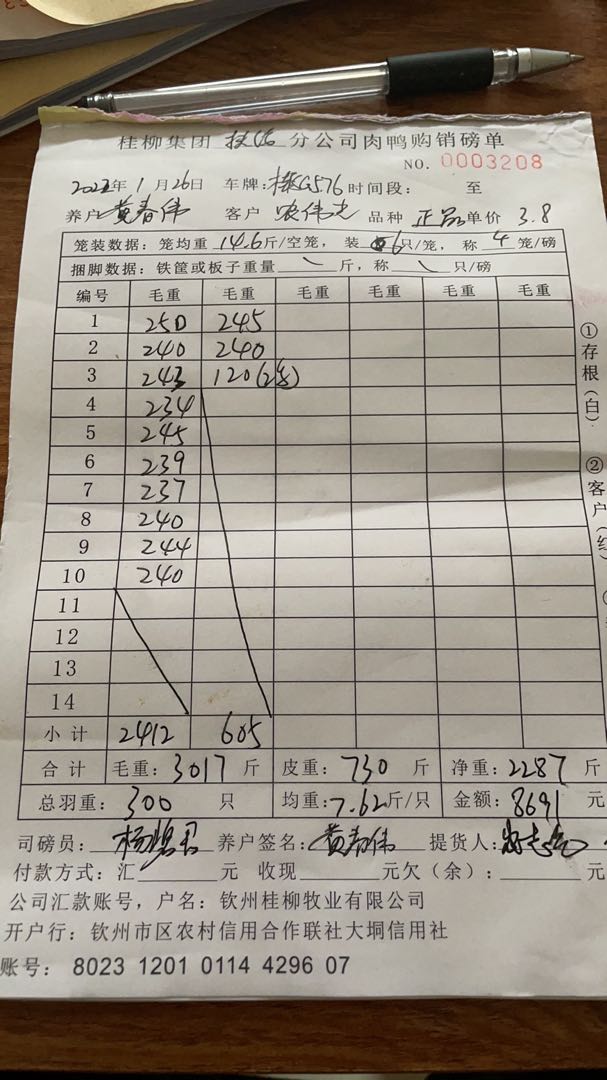 桂柳集团 扶绥 分公司肉鸭购销磅单
NO. 0003208
2022年1月26日 车牌:桂G576 时间段: 至
养户 黄春伟 客户 农伟志 品种 正品 单价 3.8
笼装数据: 笼均重 14.6 斤/空笼, 装 6 只/笼, 称 4 笼/磅
捆脚数据: 铁筐或板子重量 \ 斤, 称 \ 只/磅
编号 毛重 毛重 毛重 毛重 毛重 毛重
1 250 245
2 240 240
3 243 120(2笼)
4 234
5 245
6 239
7 237
8 240
9 244
10 240
11
12
13
14
小计 2412 605
合计 毛重: 3017 斤 皮重: 730 斤 净重: 2287 斤
总羽重: 300 只 均重: 7.62斤/只 金额: 8691 元
司磅员: 养户签名: 黄春伟 提货人:
付款方式: 汇 元 收现 元欠(余): 元
公司汇款账号, 户名: 钦州桂柳牧业有限公司
开户行: 钦州市区农村信用合作联社大垌信用社
账号: 8023 1201 0114 4296 07
①存根(白)
②客户(红)